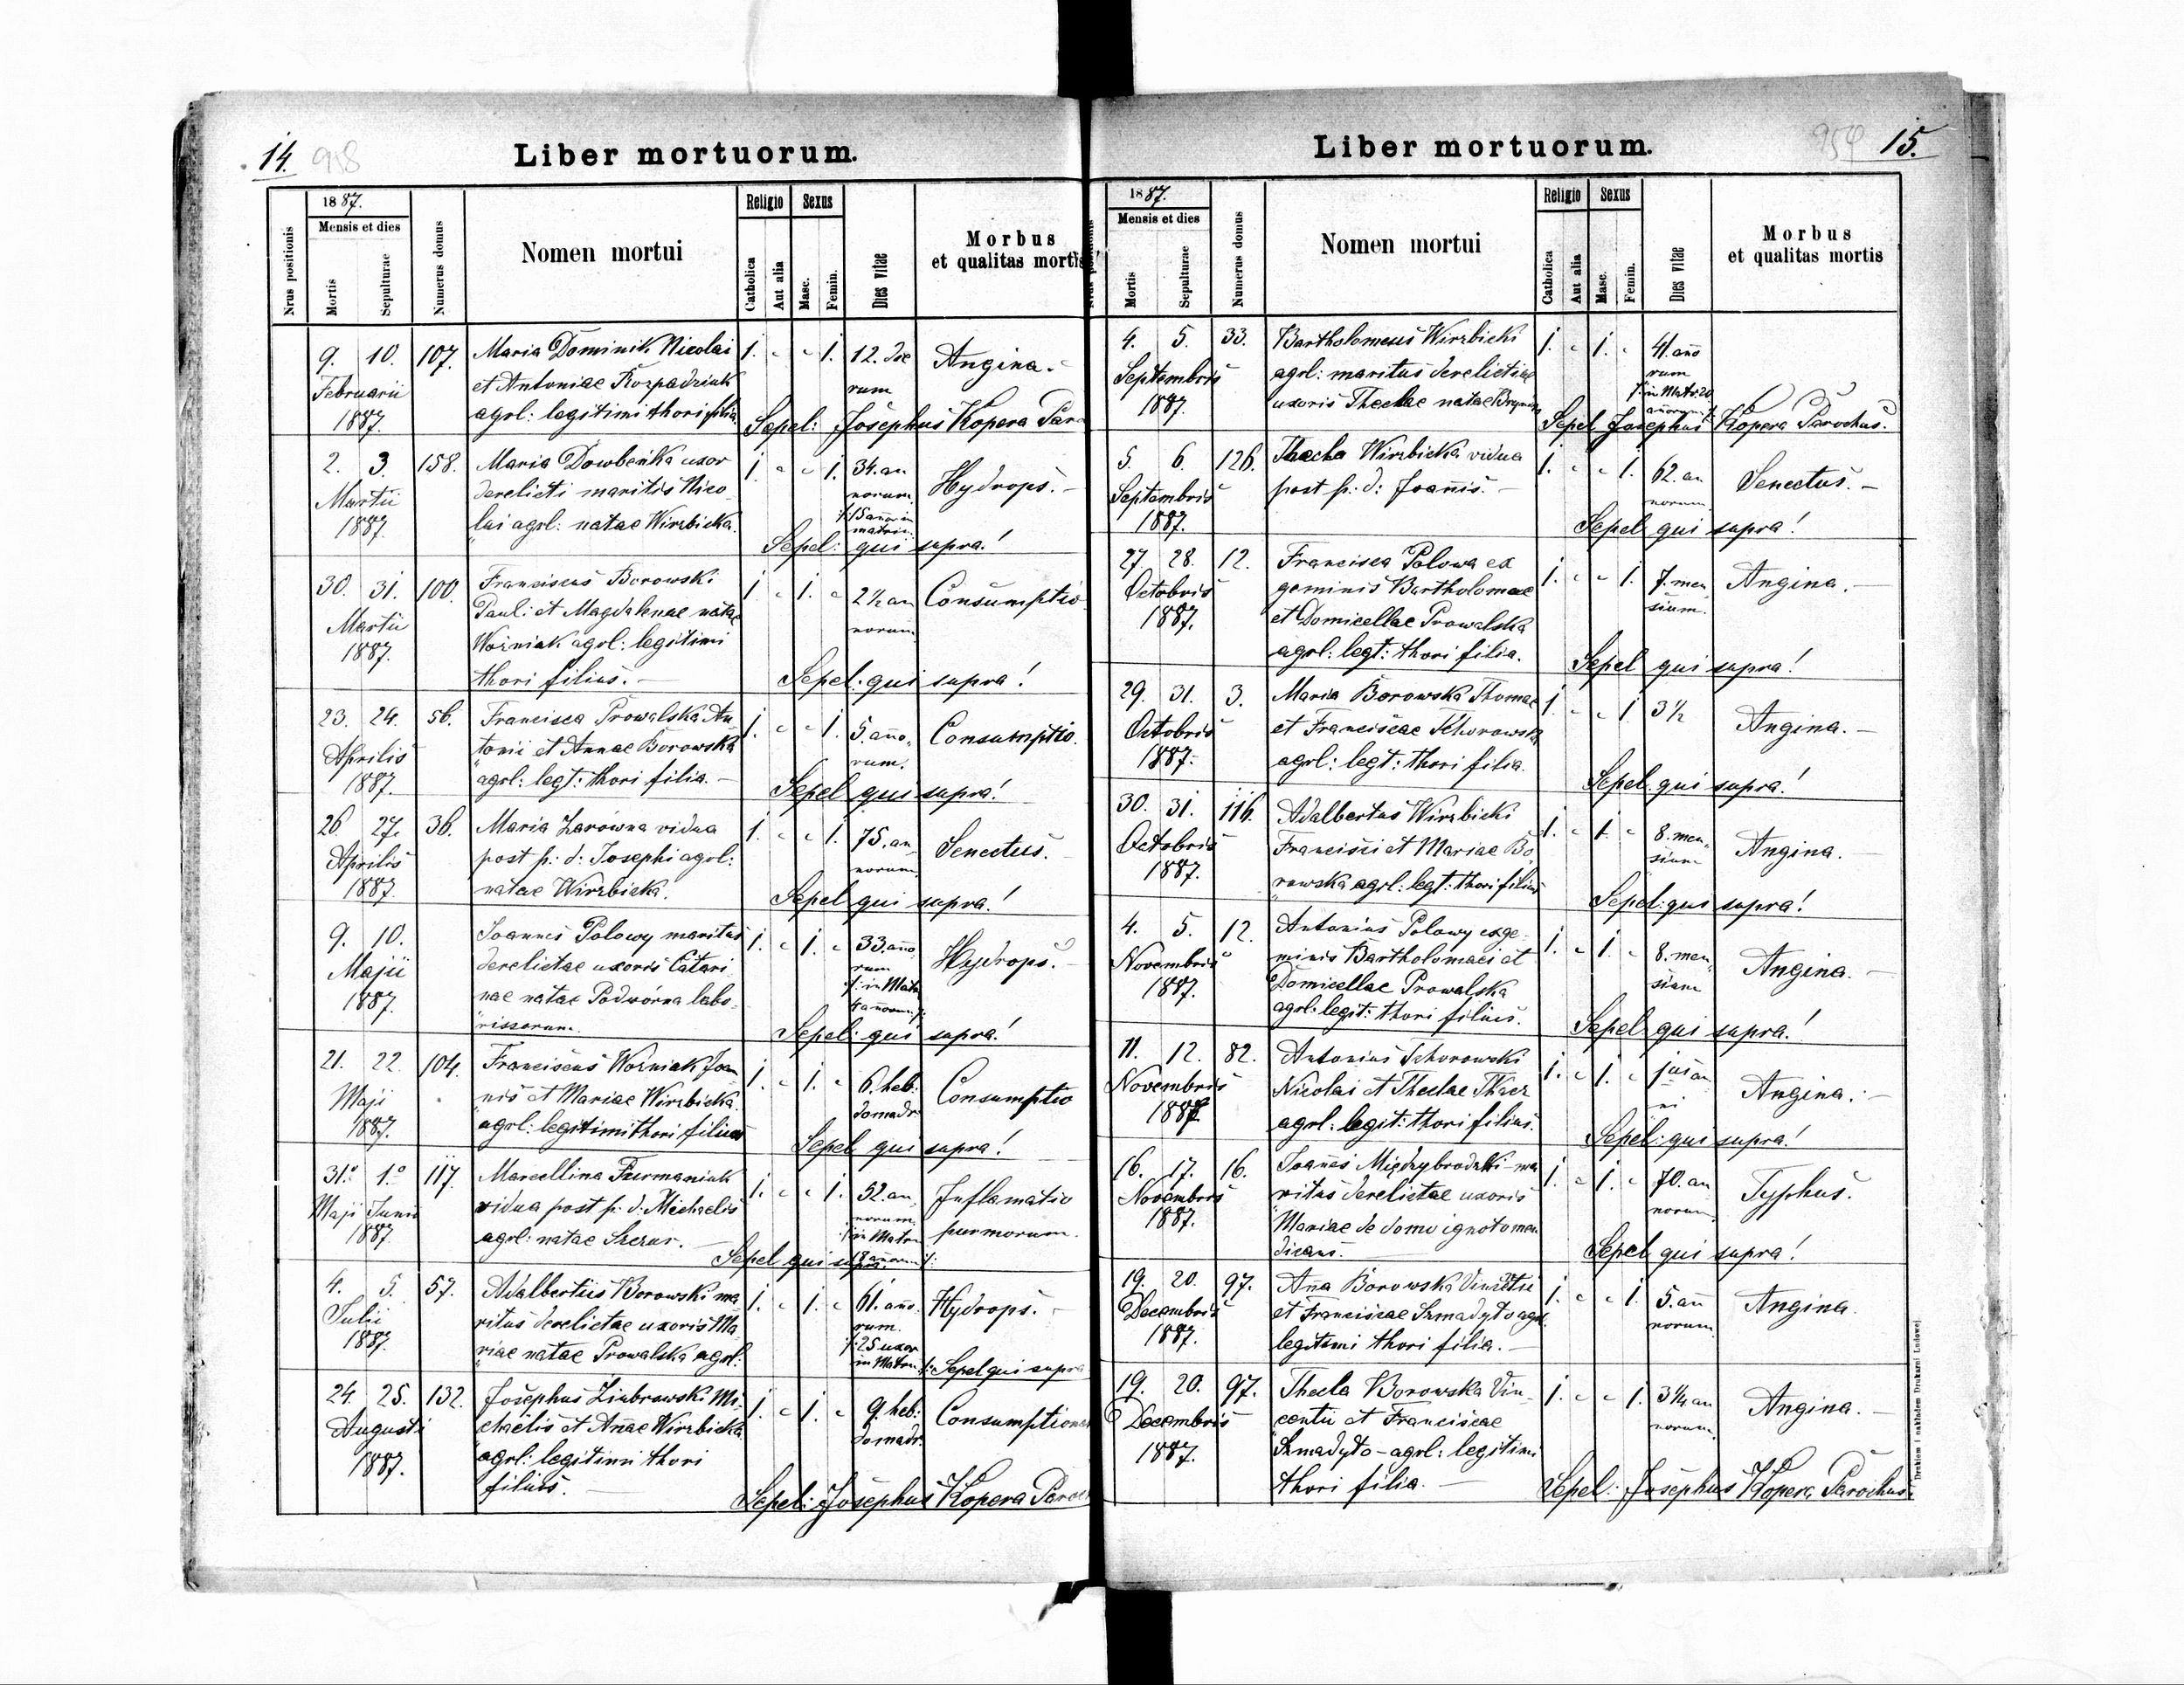 14. 958
Liber mortuorum.
Nrus positionis
1887.
Mensis et dies
Mortis
Sepulturae
Numerus domus
Nomen mortui
Religio
Catholica
Aut alia
Sexus
Masc.
Femin.
Dies vitae
Morbus
et qualitas mortis
9. 10. 107. Maria Dominik Nicolai 1. " " 1. 12. die Angina.
Februarii et Antoniae Rozpadziuk rum
1887. agrl: legitimi thori filia.
Sepel: Josephus Kopera Par
2. 3. 158. Maria Dowbeńka uxor 1. " " 1. 34. an Hydrops.
Martii derelicti maritis Nico norum.
1887. lai agrl: natae Wirzbicka. /:15 annor in
matrim.
Sepel: qui supra!
30. 31. 100. Franciscus Borowski 1. " 1. " 2½ an Consumptio
Martii Paul: et Magdalenae natae norum
1887. Woźniak agrl: legitimi
thori filius.
Sepel: qui supra!
23. 24. 56. Francisca Prowalska An 1. " " 1. 5. año Consumptio.
Aprilis tonii et Annae Borowska rum.
1887. agrl: legt: thori filia.
Sepel qui supra!
26. 27. 36. Maria Zarówna vidua 1. " " 1. 75. an Senectus.
Aprilis post p: d: Josephi agrl: norum
1887. natae Wirzbicka.
Sepel qui supra!
9. 10. Joannes Polowy maritus 1. " 1. " 33. año Hydrops.
Majii derelictae uxoris Catari rum
1887. nae natae Podwórna labo /: in Matr
rissarum. 4 annorum /:
Sepel: qui supra!
21. 22. 104. Franciscus Woźniak Joan 1. " 1. " 6. heb: Consumptio
Maji nis et Mariae Wirzbicka. domadr.
1887. agrl: legitimi thori filius
Sepel qui supra!
31° 1° 117. Marcellina Furmaniuk 1. " " 1. 52. an Inflamatio
Maji Junii vidua post p: d: Michaelis norum. purmorum.
1887. agrl: natae Szczur. /: in Matr
Sepel qui supra 18 annorum /:
4. 5. 57. Adalbertus Borowski ma 1. " 1. " 61. año Hydrops.
Julii ritus derelictae uxoris Ma rum.
1887. riae natae Prowalska agrl: /: 25 uxor
in Matrm /: Sepel qui supra
24. 25. 132. Josephus Ziubrowski Mi 1. " 1. " 9. heb: Consumptione
Augusti chaelis et Añae Wirzbicka domadr.
1887. agrl: legitimi thori
filius.
Sepel: Josephus Kopera Paroch
959 15.
Liber mortuorum.
Nrus positionis
1887.
Mensis et dies
Mortis
Sepulturae
Numerus domus
Nomen mortui
Religio
Catholica
Aut alia
Sexus
Masc.
Femin.
Dies vitae
Morbus
et qualitas mortis
4. 5. 33. Bartholomeus Wirzbicki 1. " 1. " 41. año
Septembris agrl: maritus derelictae rum
1887. uxoris Theclae natae /: in Matr: 20
annorum /:
Sepel Josephus Kopera Parochus.
5. 6. 126. Thecla Wirzbicka vidua 1. " " 1. 62. an Senectus.
Septembris post p: d: Joañis. norum
1887.
Sepel qui supra!
27. 28. 12. Francisca Polowa ex 1. " " 1. 7. men Angina.
Octobris geminis Bartholomae sium.
1887. et Domicellae Prowalska
agrl: legt: thori filia.
Sepel qui supra!
29. 31. 3. Maria Borowska Thomae 1. " " 1. 3½ Angina.
Octobris et Franciscae Tchorowska
1887. agrl: legt: thori filia.
Sepel qui supra!
30. 31. 116. Adalbertus Wirzbicki 1. " 1. " 8. men Angina.
Octobris Francisci et Mariae Bo sium
1887. rowska agrl: legt: thori filius
Sepel: qui supra!
4. 5. 12. Antonius Polowy exge 1. " 1. " 8. men Angina.
Novembris minis Bartholomaei et sium
1887. Domicellae Prowalska
agrl: legit: thori filius.
Sepel qui supra!
11. 12. 82. Antonius Tchorowski 1. " 1. " jus an Angina.
Novembris Nicolai et Theclae Tkacz ni
1887 agrl: legit: thori filius.
Sepel: qui supra!
16. 17. 16. Joañes Międzybrodzki ma 1. " 1. " 70. an Typhus.
Novembris ritus derelictae uxoris norum
1887. Mariae de domo ignoto men
dicans.
Sepel qui supra!
19. 20. 97. Aña Borowska Vincetii 1. " " 1. 5. an Angina.
Decembris et Franciscae Szmadyto agrl. norum
1887. legitimi thori filia.
19. 20. 97. Thecla Borowska Vin 1. " " 1. 3¼ an Angina.
Decembris centii et Franciscae norum.
1887. Szmadyto - agrl: legitimi
thori filia.
Sepel: Josephus Kopera Parochus.
Drukiem i nakładem Drukarni Ludowej